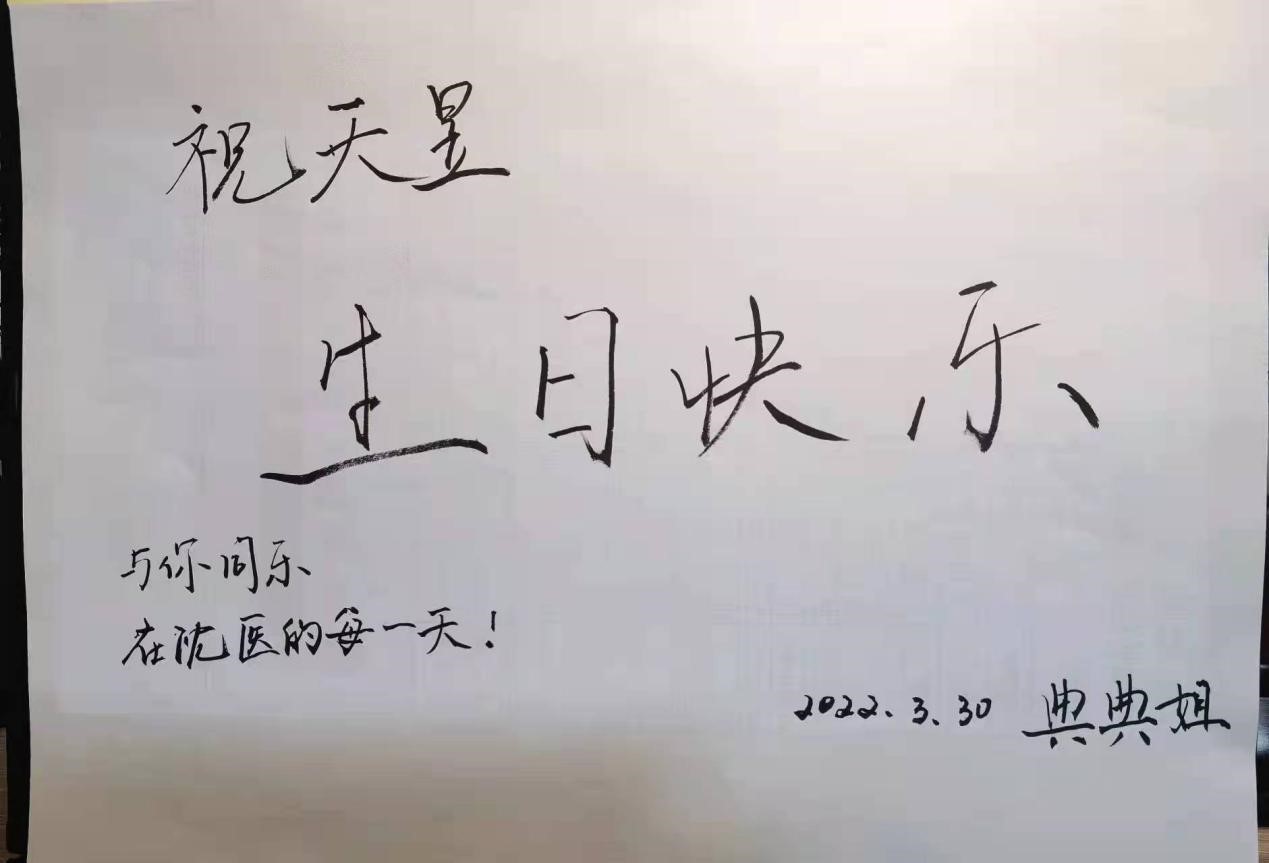 祝天昱
生日快乐
与你同乐
在沈医的每一天!
2022.3.30 典典姐